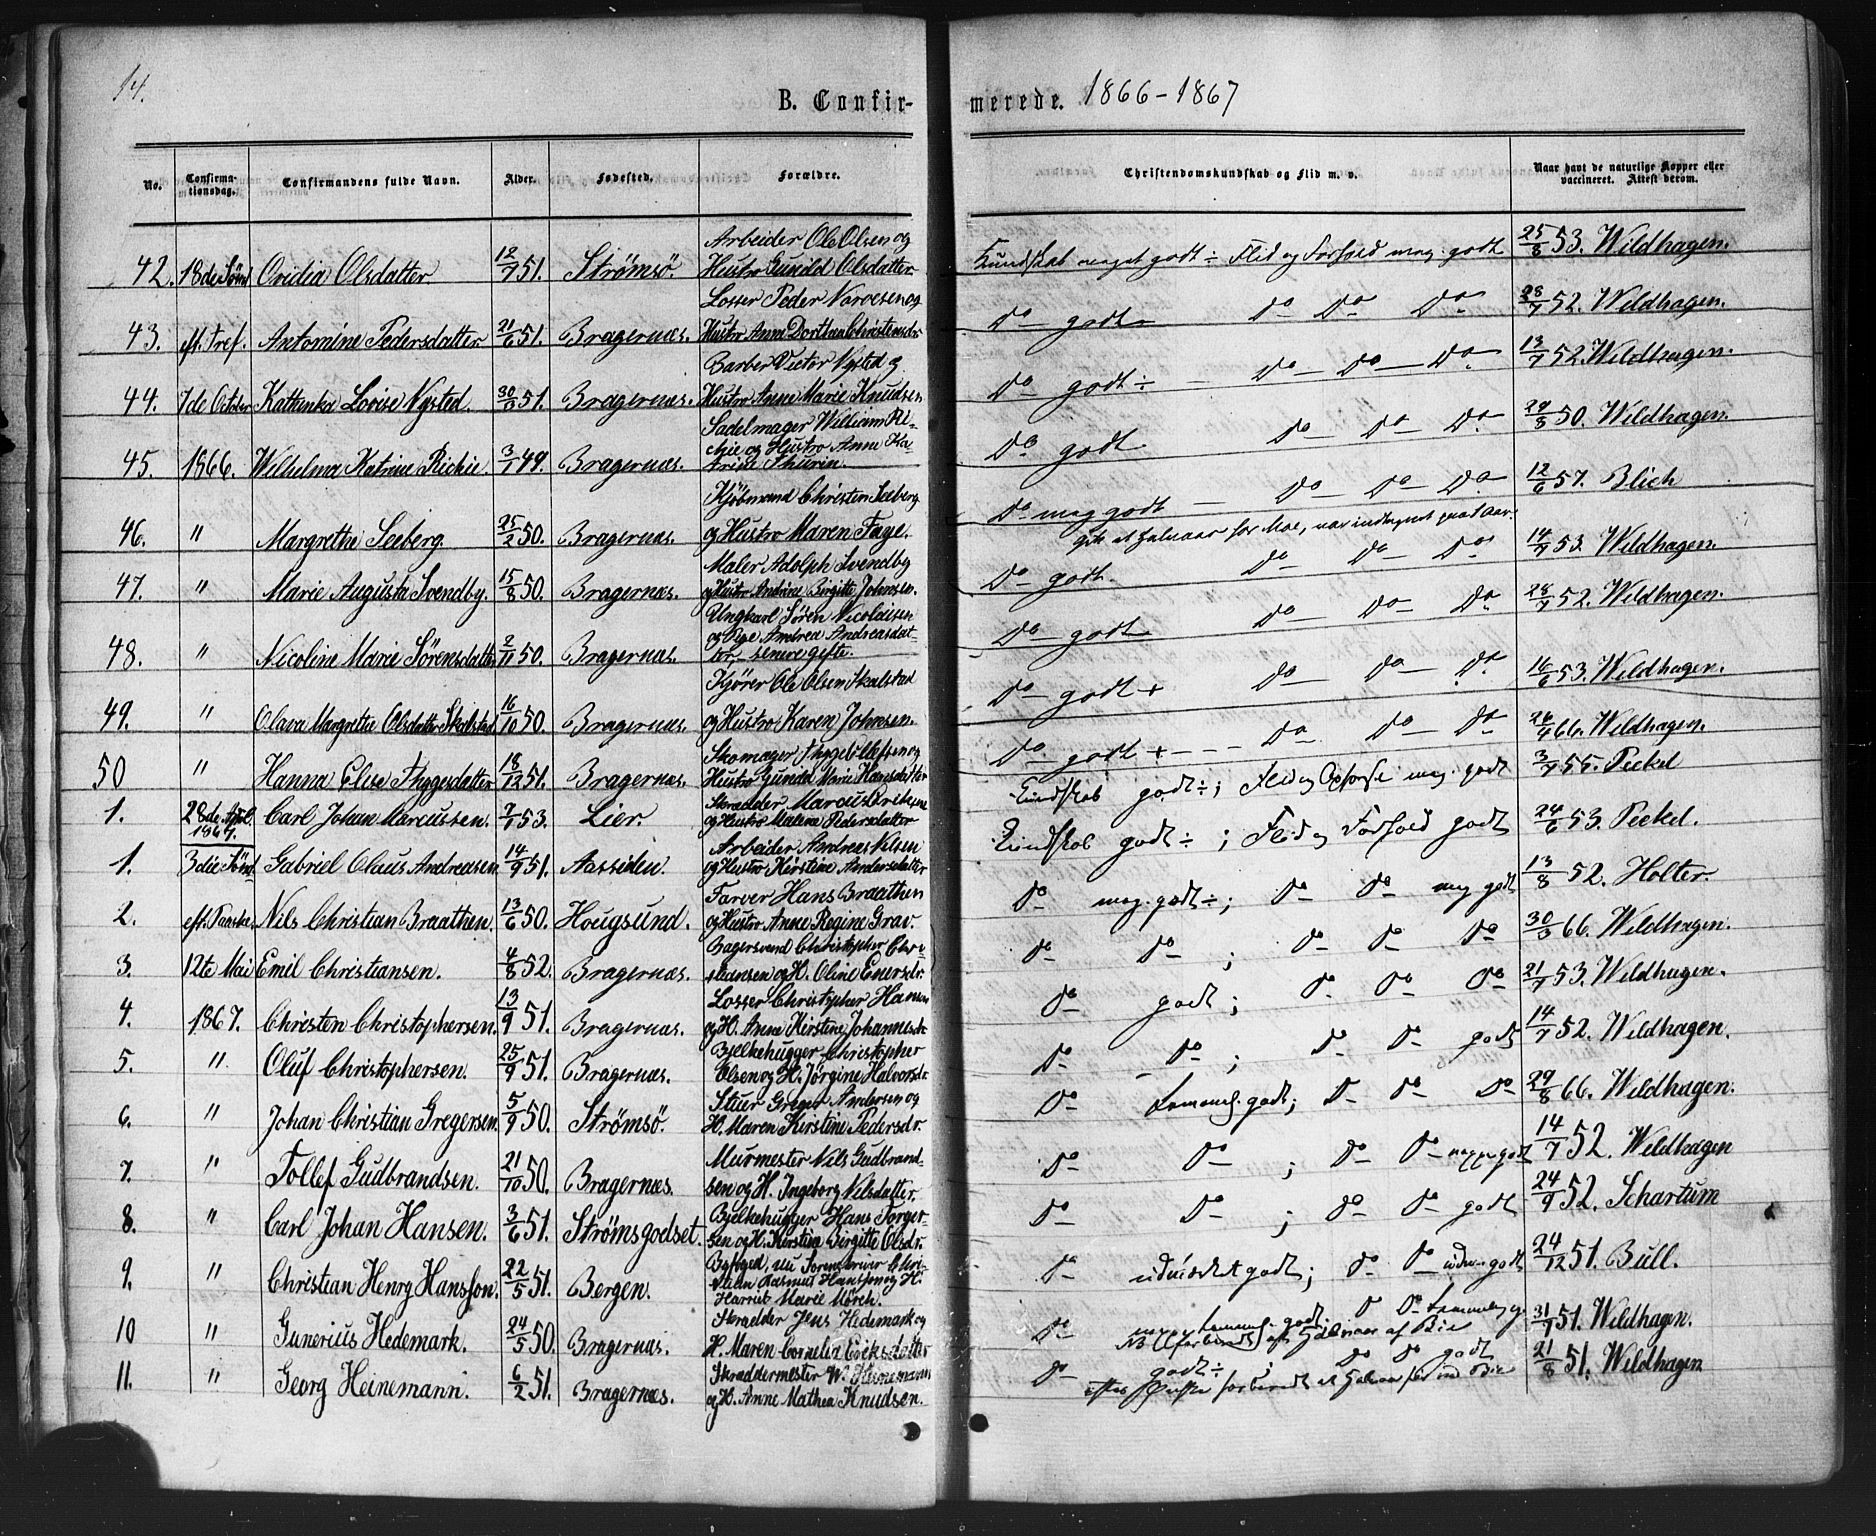 14.
B. Confirmerede. 1866-1867
No. Confirmationsdag. Confirmandens fulde Navn. Alder. Fødested. Forældre. Christendomskundskab og Flid m. v. Naar havt de naturlige Kopper eller vaccineret. Attest derom.
42. 18de Sönd Ovidia Olsdatter. 12/7 51. Strömsö. Arbeider Ole Olsen og Hustro Gunild Olsdatter Kundskab meget godt ÷ Flid og Forhold meg. godt 25/8 53. Wildhagen.
43. eft. Tref. Antomine Pedersdatter 21/6 51. Bragernæs. Losser Peder Narvesen og Hustro Anne Dorthea Christensdr. Do godt Do Do Do 28/7 52. Wildhagen.
44. 7de October Kathenka Lovise Nysted. 30/ 51. Bragernæs. Barber Victor Nysted og Hustro Anne Marie Knudsen Do godt ÷ Do Do Do 13/7 52. Wildhagen.
45. 1866. Wilhelma Katrine Richie 3/1 49. Bragernæs. Sadelmager William Ri- chie og Hustro Anne Ka- trine Thurin. Do godt Do Do Do 29/8 50. Wildhagen.
46. " Margrethe Seeberg. 25/2 50. Bragernæs. Kjöbmand Christen Seeberg og Hustro Maren Faye. Do meg godt Do Do Do 12/6 57. Blich
47. " Marie Augusta Svendby. 15/8 50. Bragernæs. Maler Adolph Svendby og Hustro Andrine Birgitte Johnsen. Do godt. Do Do Do 14/7 53. Wildhagen.
48. " Nicoline Marie Sörensdatter 2/11 50. Bragernæs. Ungkarl Sören Nicolaisen og Pige Andrea Andreasdat- ter, senere gifte. Do godt Do Do Do 28/7 52. Wildhagen.
49. " Olava Margrethe Olsdatter Skalstad 16/10 50. Bragernæs. Kjörer Ole Olsen Skalstad og Hustro Karen Johnsen. Do godt + Do Do Do 16/6 53. Wildhagen.
50 " Hanna Elise Thygesdatter 18/12 51. Bragernæs. Skomager Thyge Ellefsen og Hustro Gunild Marie Hansdatter Do godt + Do Do Do 26/4 66. Wildhagen.
1. 28de April 1867. Carl Johan Marcussen. 7/7 53. Lier. Skrædder Marcus Eriksen og Hustro Malene Pedersdatter Kundskab godt ÷; Flid og Opförsel meg. godt 3/7 55. Peckel
1. 3die Sönd. Gabriel Olaus Andreasen 14/9 51. Aassiden. Arbeider Andreas Nilsen og Hustro Kirstine Andersdatter Kundskab godt ÷; Flid og Forhold godt 24/6 53. Peckel.
2. eft. Paaske Nils Christian Braathen. 13/6 50. Hougsund. Farver Hans Braathen og Hustro Anne Regine Grav. Do meg. godt ÷; Do Do meg godt 13/8 52. Holter.
3. 12te Mai Emil Christiansen. 4/8 52. Bragernæs. Bagersvend Christopher Chri- stiansen og H. Oline Enersdr. Do Do; Do Do Do 30/3 66. Wildhagen.
4. 1867. Christen Christophersen. 13/9 51. Bragernæs. Losser Christopher Hansen og H. Anne Kirstine Johannesdr. Do godt; Do Do Do 21/7 53. Wildhagen.
5. " Oluf Christophersen. 25/9 51. Bragernæs. Bjelkehugger Christopher Olsen og H. Jörgine Halvorsdr. Do Do; Do Do godt 14/7 52. Wildhagen.
6. " Johan Christian Gregersen. 5/9 50. Strömsö. Stuer Greger Andersen og H. Maren Kirstine Pedersdr. Do temmel. godt; Do Do Do 29/8 66. Wildhagen.
7. " Tollef Gudbrandsen. 21/10 50. Bragernæs. Murmester Nils Gudbrand- sen og H. Ingeborg Nilsdatter. Do Do; Do Do neppe godt 14/7 52. Wildhagen
8. " Carl Johan Hansen. 3/6 51. Strömsgodset. Bjelkehugger Hans Torger- sen og H. Kirstine Birgitte Olsdr. Do Do; Do Do godt 24/9 52. Schartum
9. " Christian Henry Hansson. 22/5 51. Bergen. Byfoged, nu Sorenskriver Chri- stian Rasmus Hansson og H. Harriet Marie Mörch. Do udmærket godt; Do Do udm. godt 24/12 51. Bull.
10 " Gunerius Hedemark. 24/5 50. Bragernæs. Skrædder Jens Hedemark og H. Maren Cornelia Eriksdatter Do temmel. godt; Do Do 31/7 51. Wildhagen.
11. " Georg Heinemann. 6/2 51. Bragernæs. Skræddermester W. Heinemann og H. Anne Mathea Knudsen. Do godt ÷; Do Do godt 21/8 51. Wildhagen